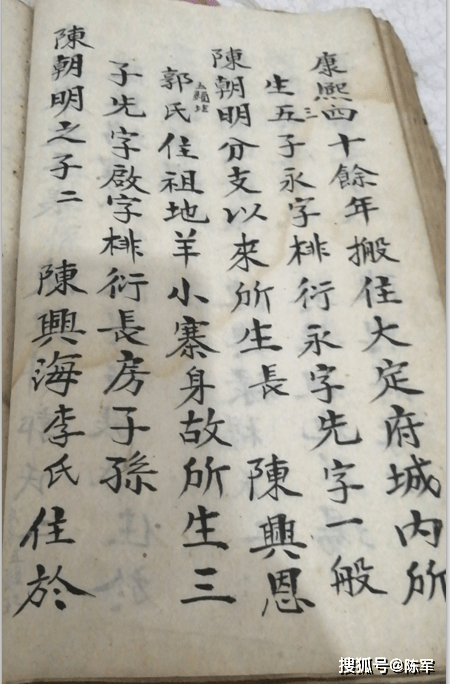 康熙四十餘年搬住大定府城内所
三
生五子永字桃衍永字先字一般
陳朝明分支以來所生長 陳興恩
郭氏住祖地羊小寨身故所生三
子先字啟字桃衍長房子孫
陳朝明之子二 陳興海李氏住於
搜狐号@陈军